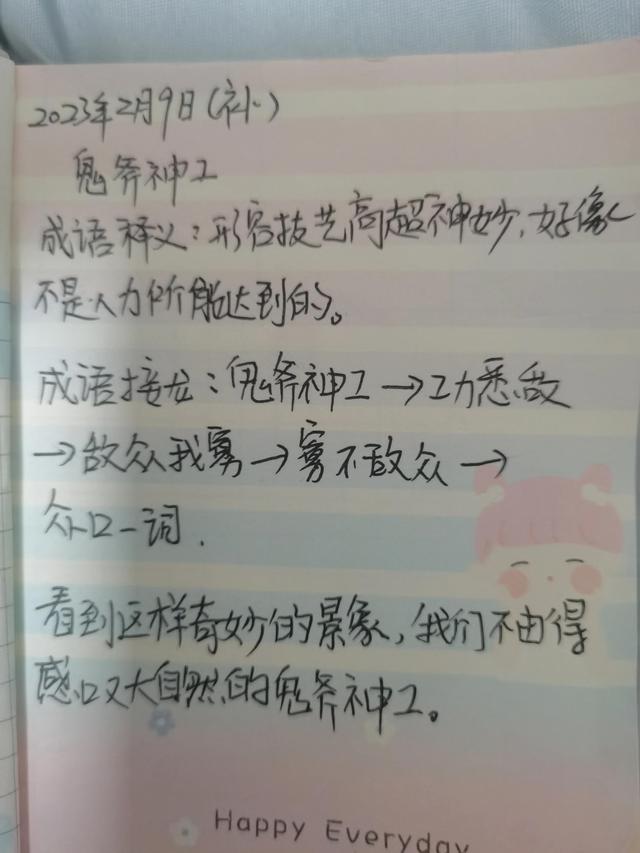 2023年2月9日(补)
鬼斧神工
成语释义:形容技艺高超神妙,好像
不是人力所能达到的。
成语接龙:鬼斧神工→工力悉敌
→敌众我寡→寡不敌众→
众口一词.
看到这样奇妙的景象,我们不由得
感叹大自然的鬼斧神工。
Happy Everyday